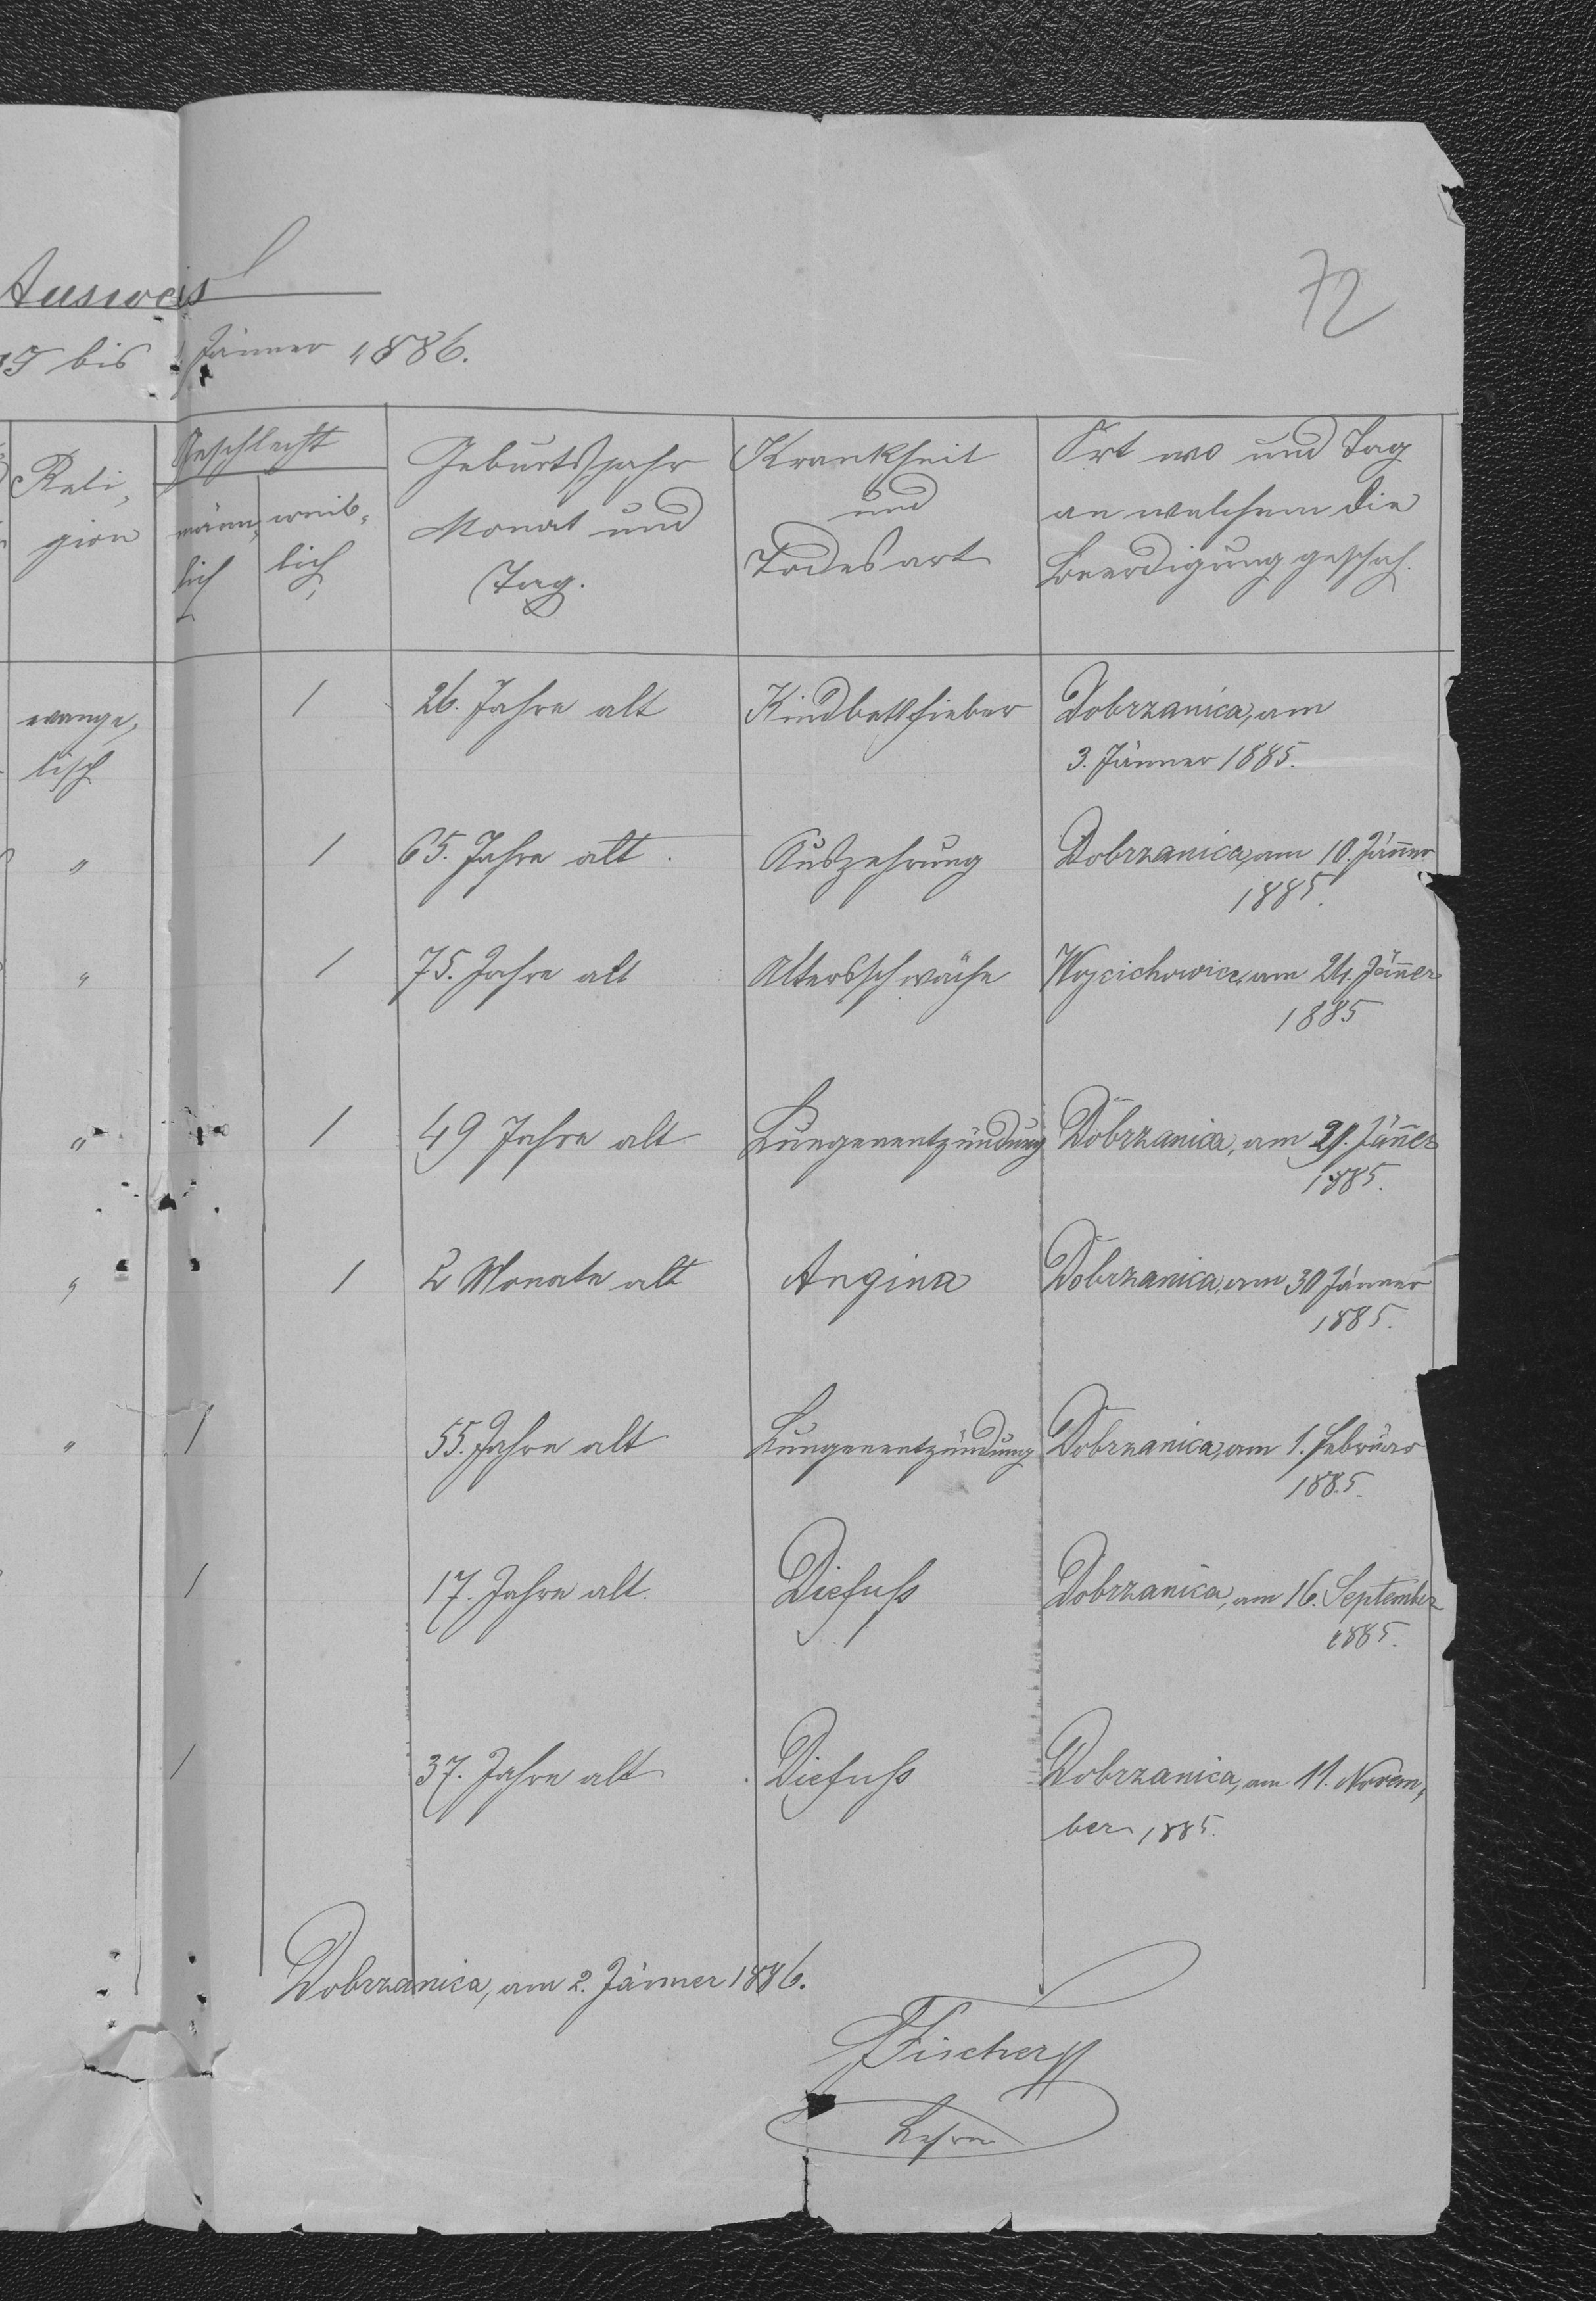 72
Ausweis
bis 1. Jänner 1886.
Reli,
gion
Geschlecht
männ,
lich
weib,
lich
Geburtsjahr
Monat und
Tag.
Krankheit
und
Todesart
Ort wo und Tag
an welchem die
Beerdigung geschah.
evange,
lisch
1
26. Jahre alt
Kindbettfieber
Dobrzanica, am
3. Jänner 1885.
"
1
65. Jahre alt.
Auszehrung
Dobrzanica, am 10. Jäner
1885.
"
1
75. Jahre alt
Altersschwäche
Wojcichowice, am 24. Jäner
1885
"
1
49 Jahre alt
Lungenentzündung
Dobrzanica, am 29. Jäner
1885.
"
1
2 Monate alt
Angina
Dobrzanica, am 30 Jänner
1885.
"
1
55. Jahre alt
Lungenentzündung
Dobrzanica, am 1. Februar
1885.
1
17. Jahre alt.
Diefuß
Dobrzanica, am 16. September
1885.
1
37. Jahre alt
Diefuß
Dobrzanica, am 11. Novem,
ber 1885.
Dobrzanica, am 2. Jänner 1886.
Fischer